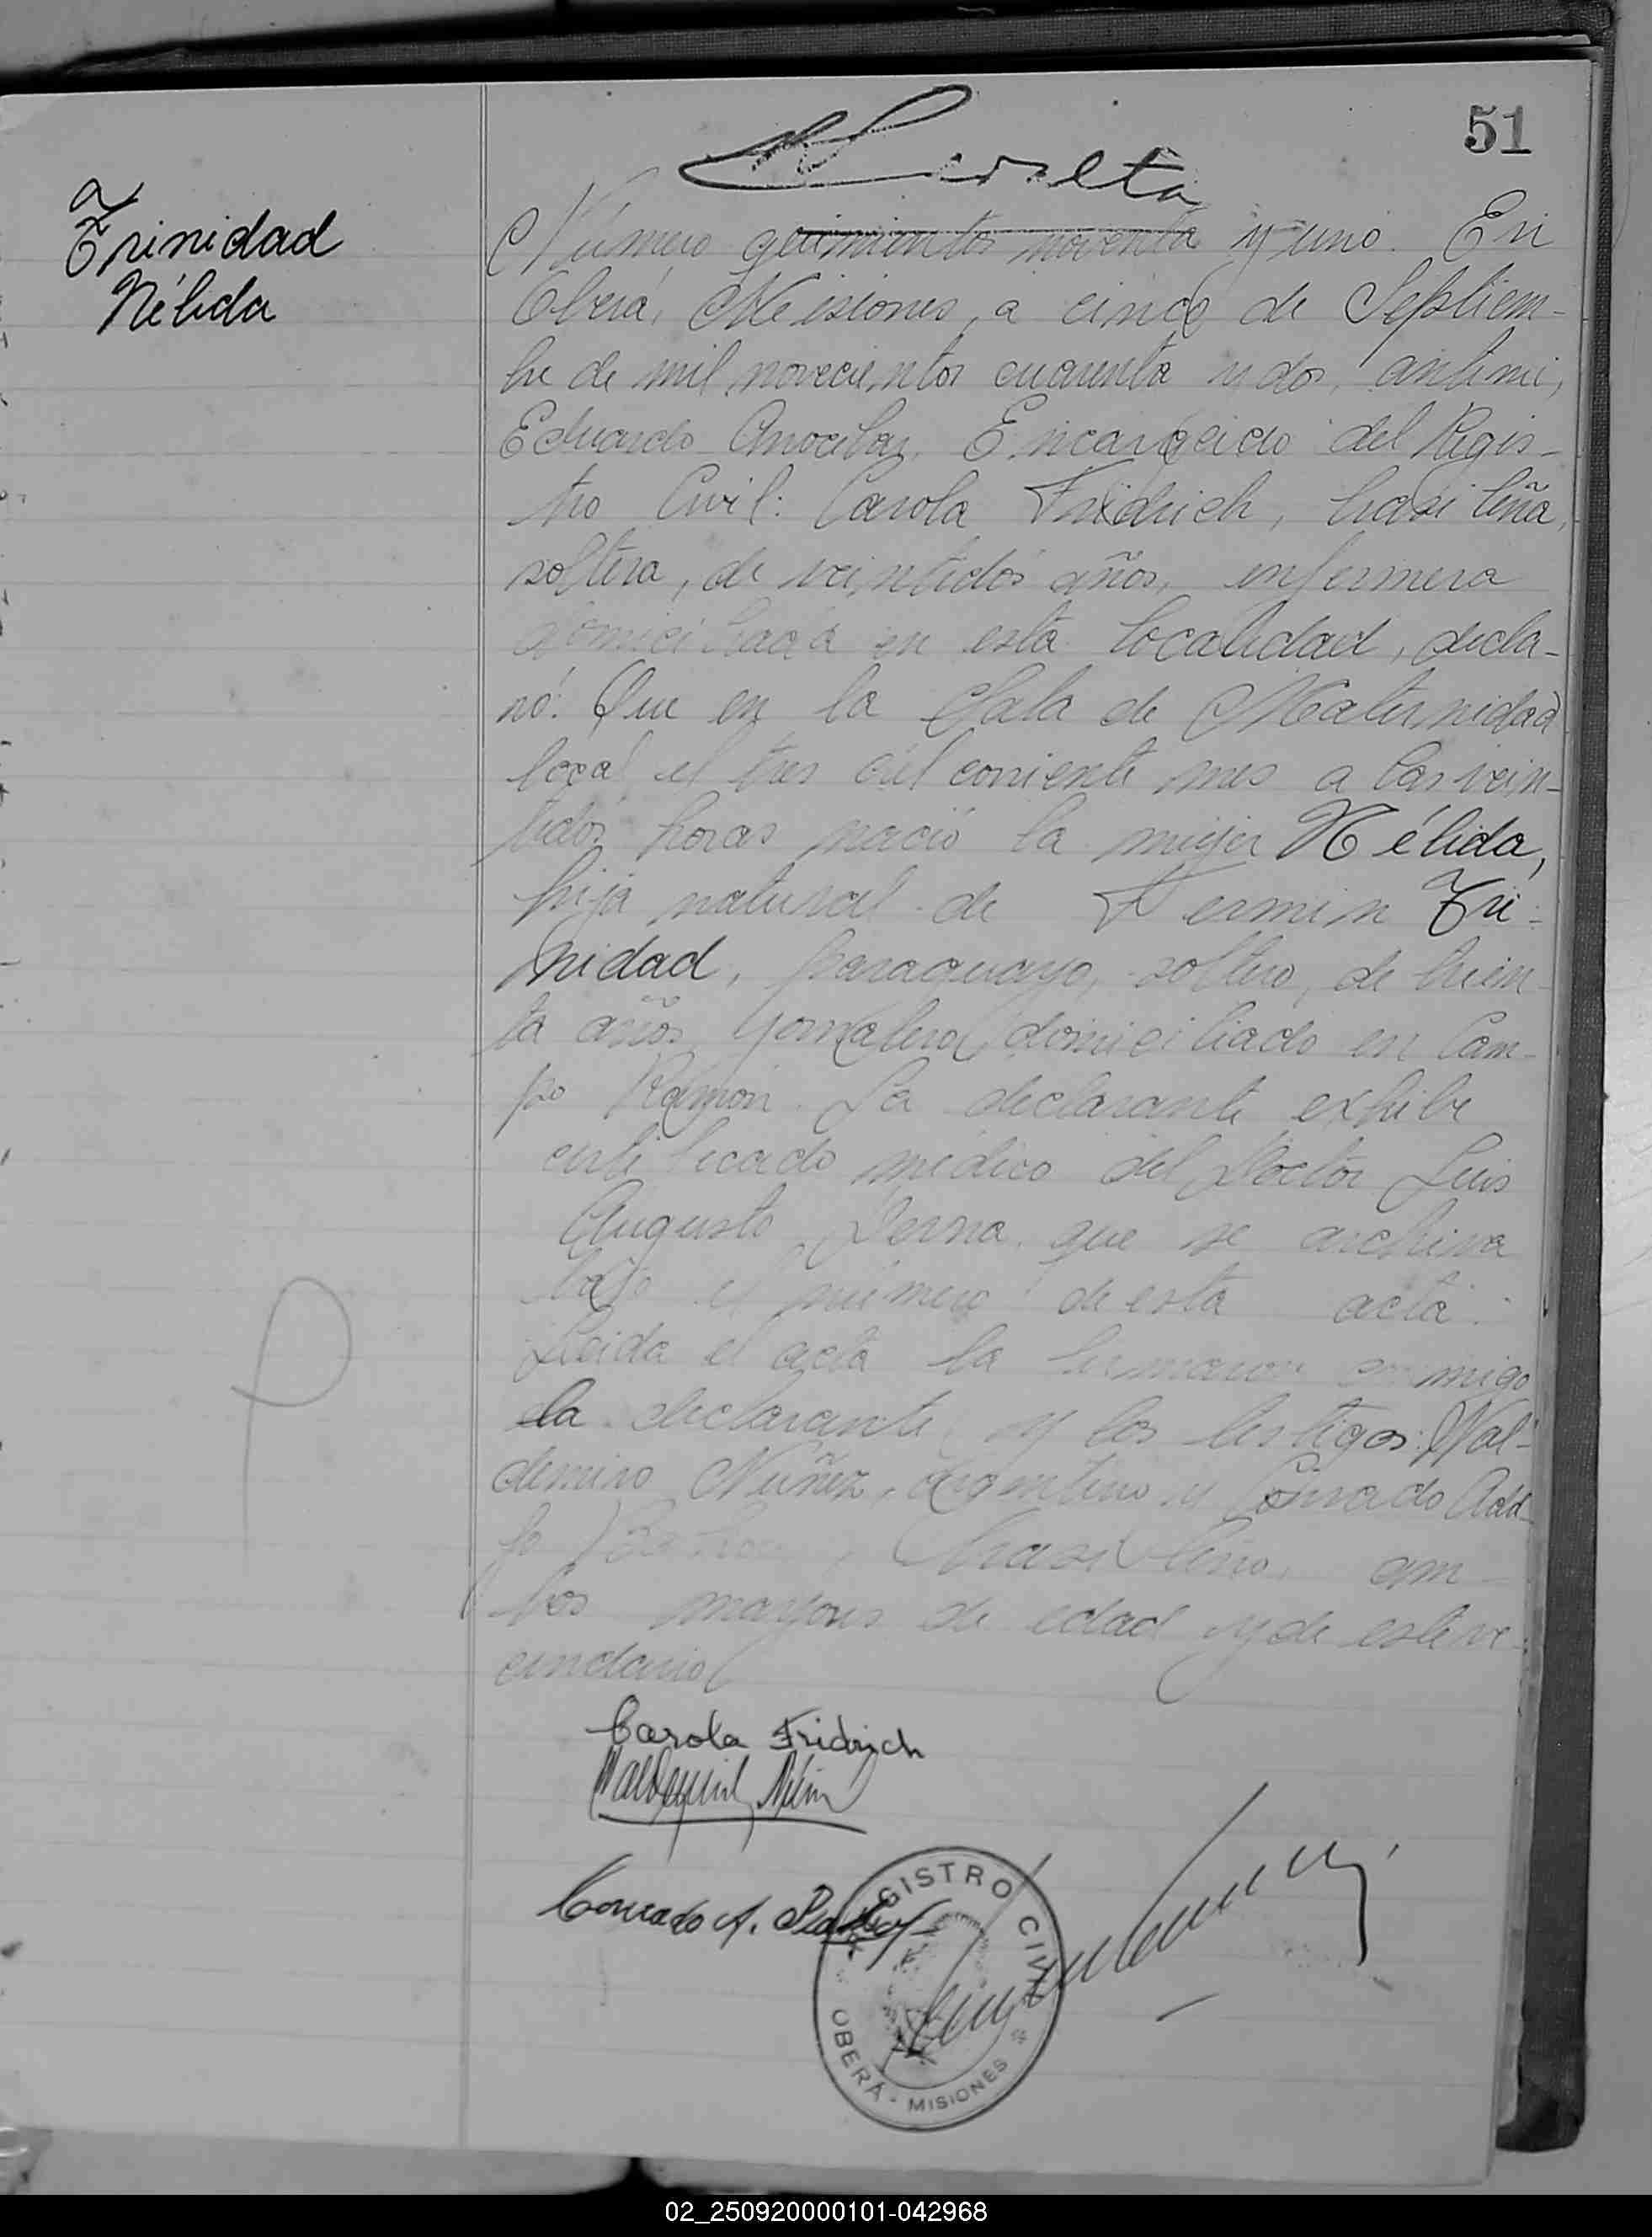 51
Trinidad
Nélida
Número quinientos noventa y uno. En
Oberá, Misiones, a cinco de Septiem-
bre de mil novecientos cuarenta y dos, ante mi,
Eduardo Encargado del Regis-
tro Civil: Carola Fridrich, brasileña,
soltera, de veintidós años, enfermera
domiciliada en esta localidad, decla-
ró: Que en la Sala de Maternidad
local el tres del corriente mes a las vein-
tidós horas nació la mujer Nélida,
hija natural de Fermin Tri-
nidad, paraguayo, soltero, de trein-
ta años, jornalero, domiciliado en Cam-
po Ramón. La declarante exhibe
certificado médico del Doctor Luis
Augusto que se archiva
bajo el número de esta acta.
Leida el acta la conmigo
la declarante, y los testigos: Wal-
demiro Núñez, argentino y Conrado Adol-
fo brasileño, am-
bos mayores de edad y de este ve-
cindario
Carola Fridrich
Conrado A.
REGISTRO CIVIL
OBERÁ - MISIONES
02_250920000101-042968